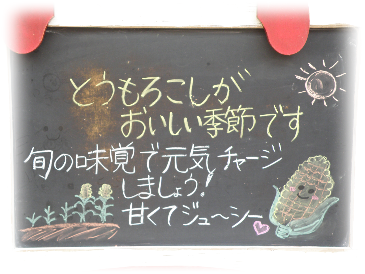 とうもろこしが
おいしい季節です
旬の味覚で元気チャージ
しましょう!
甘くてジューシー